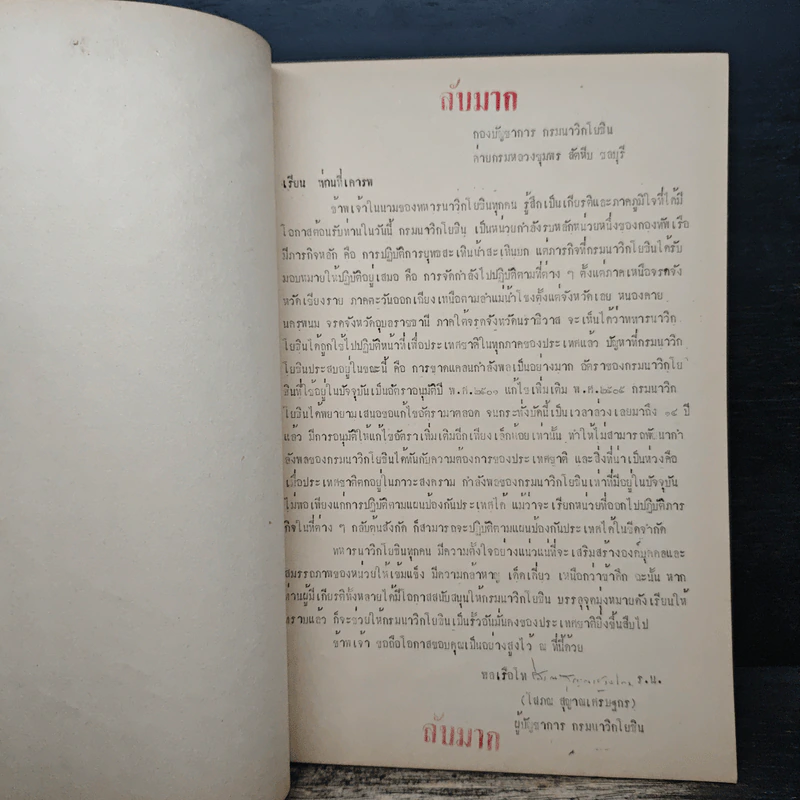 ลับมาก
กองบัญชาการ กรมนาวิกโยธิน
ค่ายกรมหลวงชุมพร สัตหีบ ชลบุรี
เรียน ท่านที่เคารพ
ข้าพเจ้าในนามของทหารนาวิกโยธินทุกคน รู้สึกเป็นเกียรติและภาคภูมิใจที่ได้มี
โอกาสต้อนรับท่านในวันนี้ กรมนาวิกโยธิน เป็นหน่วยกำลังรบหลักหน่วยหนึ่งของกองทัพเรือ
มีภารกิจหลัก คือ การปฏิบัติการยุทธสะเทินน้ำสะเทินบก แต่ภารกิจที่กรมนาวิกโยธินได้รับ
มอบหมายให้ปฏิบัติอยู่เสมอ คือ การจัดกำลังไปปฏิบัติตามที่ต่าง ๆ ตั้งแต่ภาคเหนือจรดจัง
หวัดเชียงราย ภาคตะวันออกเฉียงเหนือตามลำแม่น้ำโขงตั้งแต่จังหวัดเลย หนองคาย
นครพนม จรดจังหวัดอุบลราชธานี ภาคใต้จรดจังหวัดนราธิวาส จะเห็นได้ว่าทหารนาวิก
โยธินได้ถูกใช้ไปปฏิบัติหน้าที่เพื่อประเทศชาติในทุกภาคของประเทศแล้ว ปัญหาที่กรมนาวิก
โยธินประสบอยู่ในขณะนี้ คือ การขาดแคลนกำลังพลเป็นอย่างมาก อัตราของกรมนาวิกโย
ธินที่ใช้อยู่ในปัจจุบันเป็นอัตราอนุมัติปี พ.ศ.๒๕๐๑ แก้ไขเพิ่มเติม พ.ศ.๒๕๐๙ กรมนาวิก
โยธินได้พยายามเสนอขอแก้ไขอัตรามาตลอด จนกระทั่งบัดนี้เป็นเวลาล่วงเลยมาถึง ๑๙ ปี
แล้ว มีการอนุมัติให้แก้ไขอัตราเพิ่มเติมอีกเพียงเล็กน้อยเท่านั้น ทำให้ไม่สามารถพัฒนากำ
ลังพลของกรมนาวิกโยธินได้ทันกับความต้องการของประเทศชาติ และสิ่งที่น่าเป็นห่วงคือ
เมื่อประเทศชาติตกอยู่ในภาวะสงคราม กำลังพลของกรมนาวิกโยธินเท่าที่มีอยู่ในปัจจุบัน
ไม่พอเพียงแก่การปฏิบัติตามแผนป้องกันประเทศได้ แม้ว่าจะเรียกหน่วยที่ออกไปปฏิบัติภาร
กิจในที่ต่าง ๆ กลับต้นสังกัด ก็สามารถจะปฏิบัติตามแผนป้องกันประเทศได้ในขีดจำกัด
ทหารนาวิกโยธินทุกคน มีความตั้งใจอย่างแน่วแน่ที่จะเสริมสร้างองค์บุคคลและ
สมรรถภาพของหน่วยให้เข้มแข็ง มีความกล้าหาญ เด็ดเดี่ยว เหนือกว่าข้าศึก ฉะนั้น หาก
ท่านผู้มีเกียรติทั้งหลายได้มีโอกาสสนับสนุนให้กรมนาวิกโยธิน บรรลุจุดมุ่งหมายดังเรียนให้
ทราบแล้ว ก็จะช่วยให้กรมนาวิกโยธินเป็นรั้วอันมั่นคงของประเทศชาติยิ่งขึ้นสืบไป
ข้าพเจ้า ขอถือโอกาสขอบคุณเป็นอย่างสูงไว้ ณ ที่นี้ด้วย
พลเรือโท ร.น.
(โสภณ สุญาณเศรษฐกร)
ผู้บัญชาการ กรมนาวิกโยธิน
ลับมาก